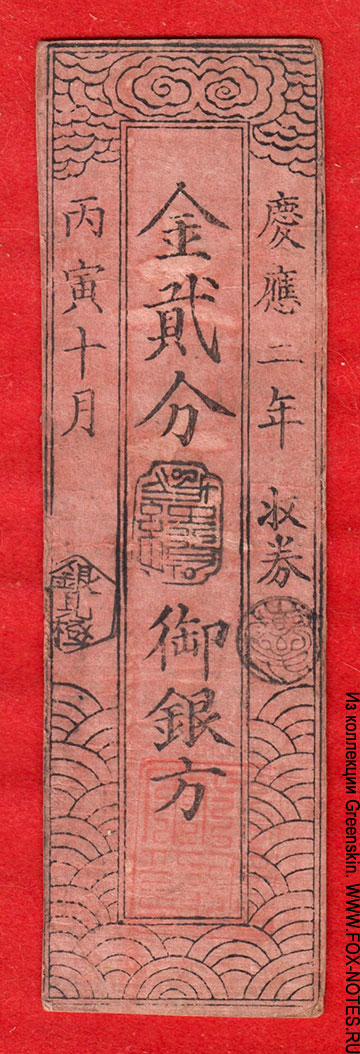 慶應二年 収券
金貳分
御銀方
丙寅十月
Из коллекции Greenskin. WWW.FOX-NOTES.RU